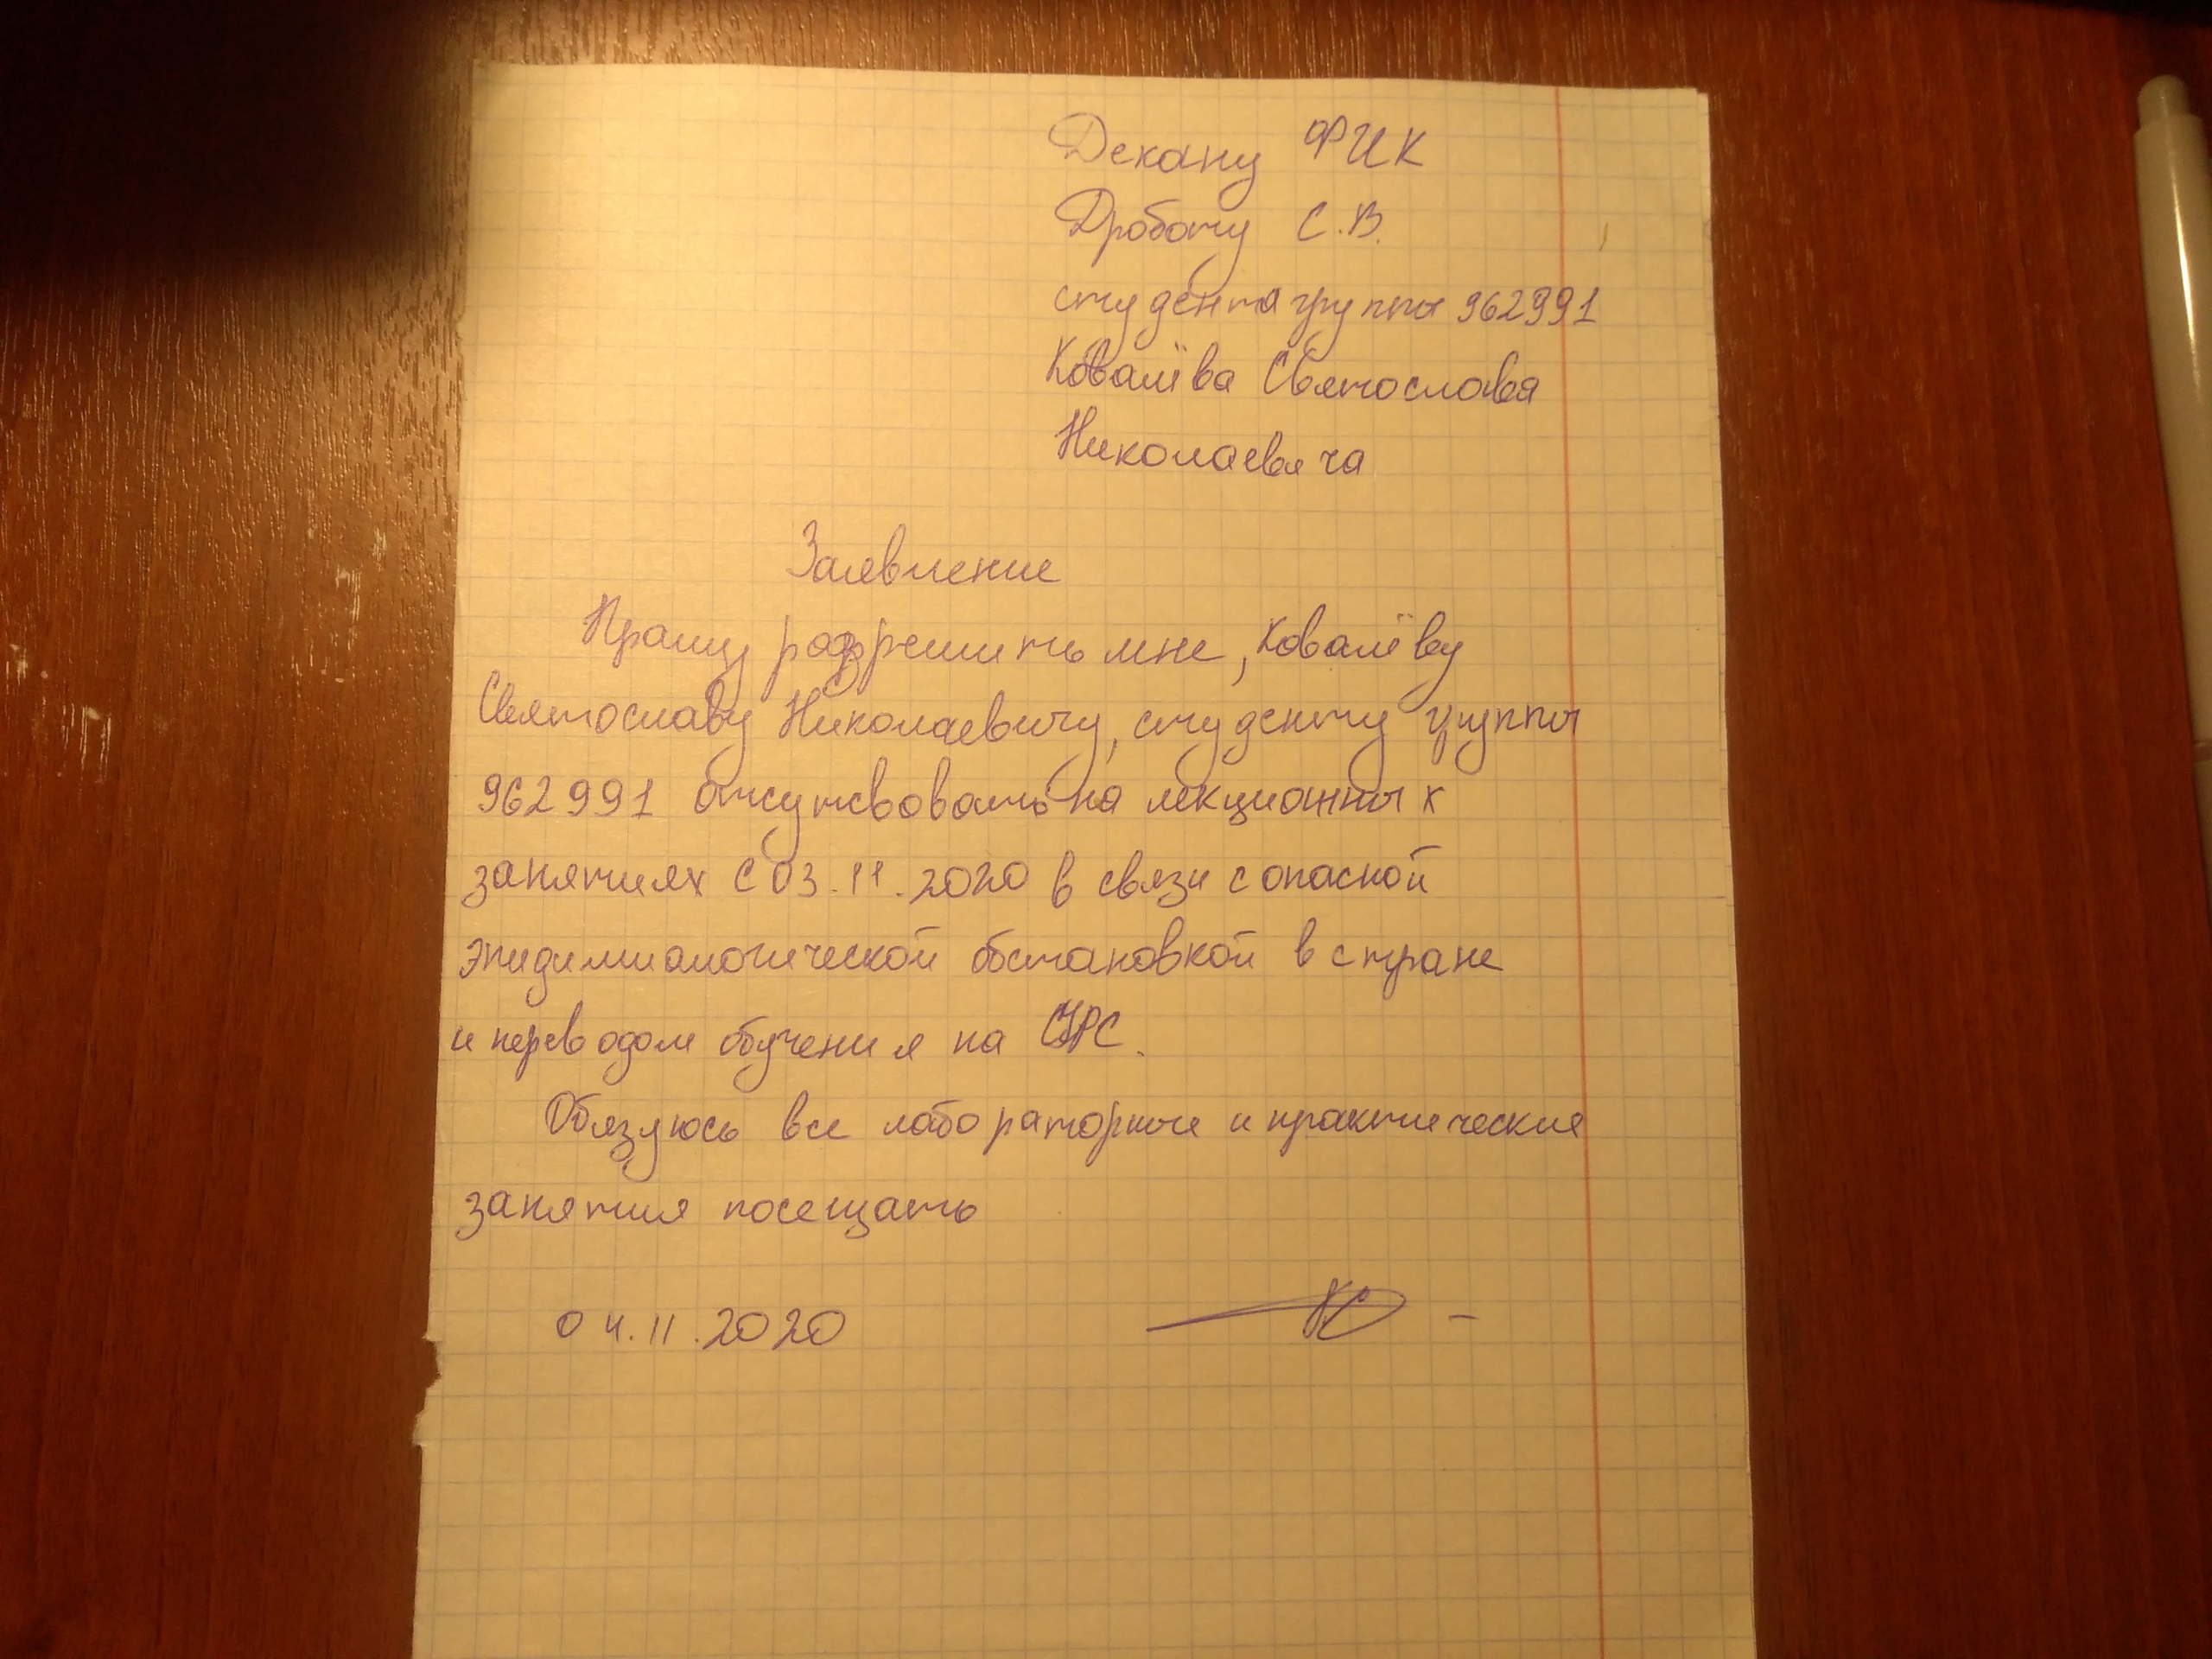 Декану ФИК
Дроботу С.В.
студента группы 962991
Ковалёва Святослава
Николаевича
Заявление
Прошу разрешить мне, Ковалёву
Святославу Николаевичу, студенту группы
962991 отсутвовать на лекционных
занятиях с 03.11.2020 в связи с опасной
эпидимиологической обстановкой в стране
и переводом обучения на СРС.
Обязуюсь все лабораторные и практические
занятия посещать
04.11.2020